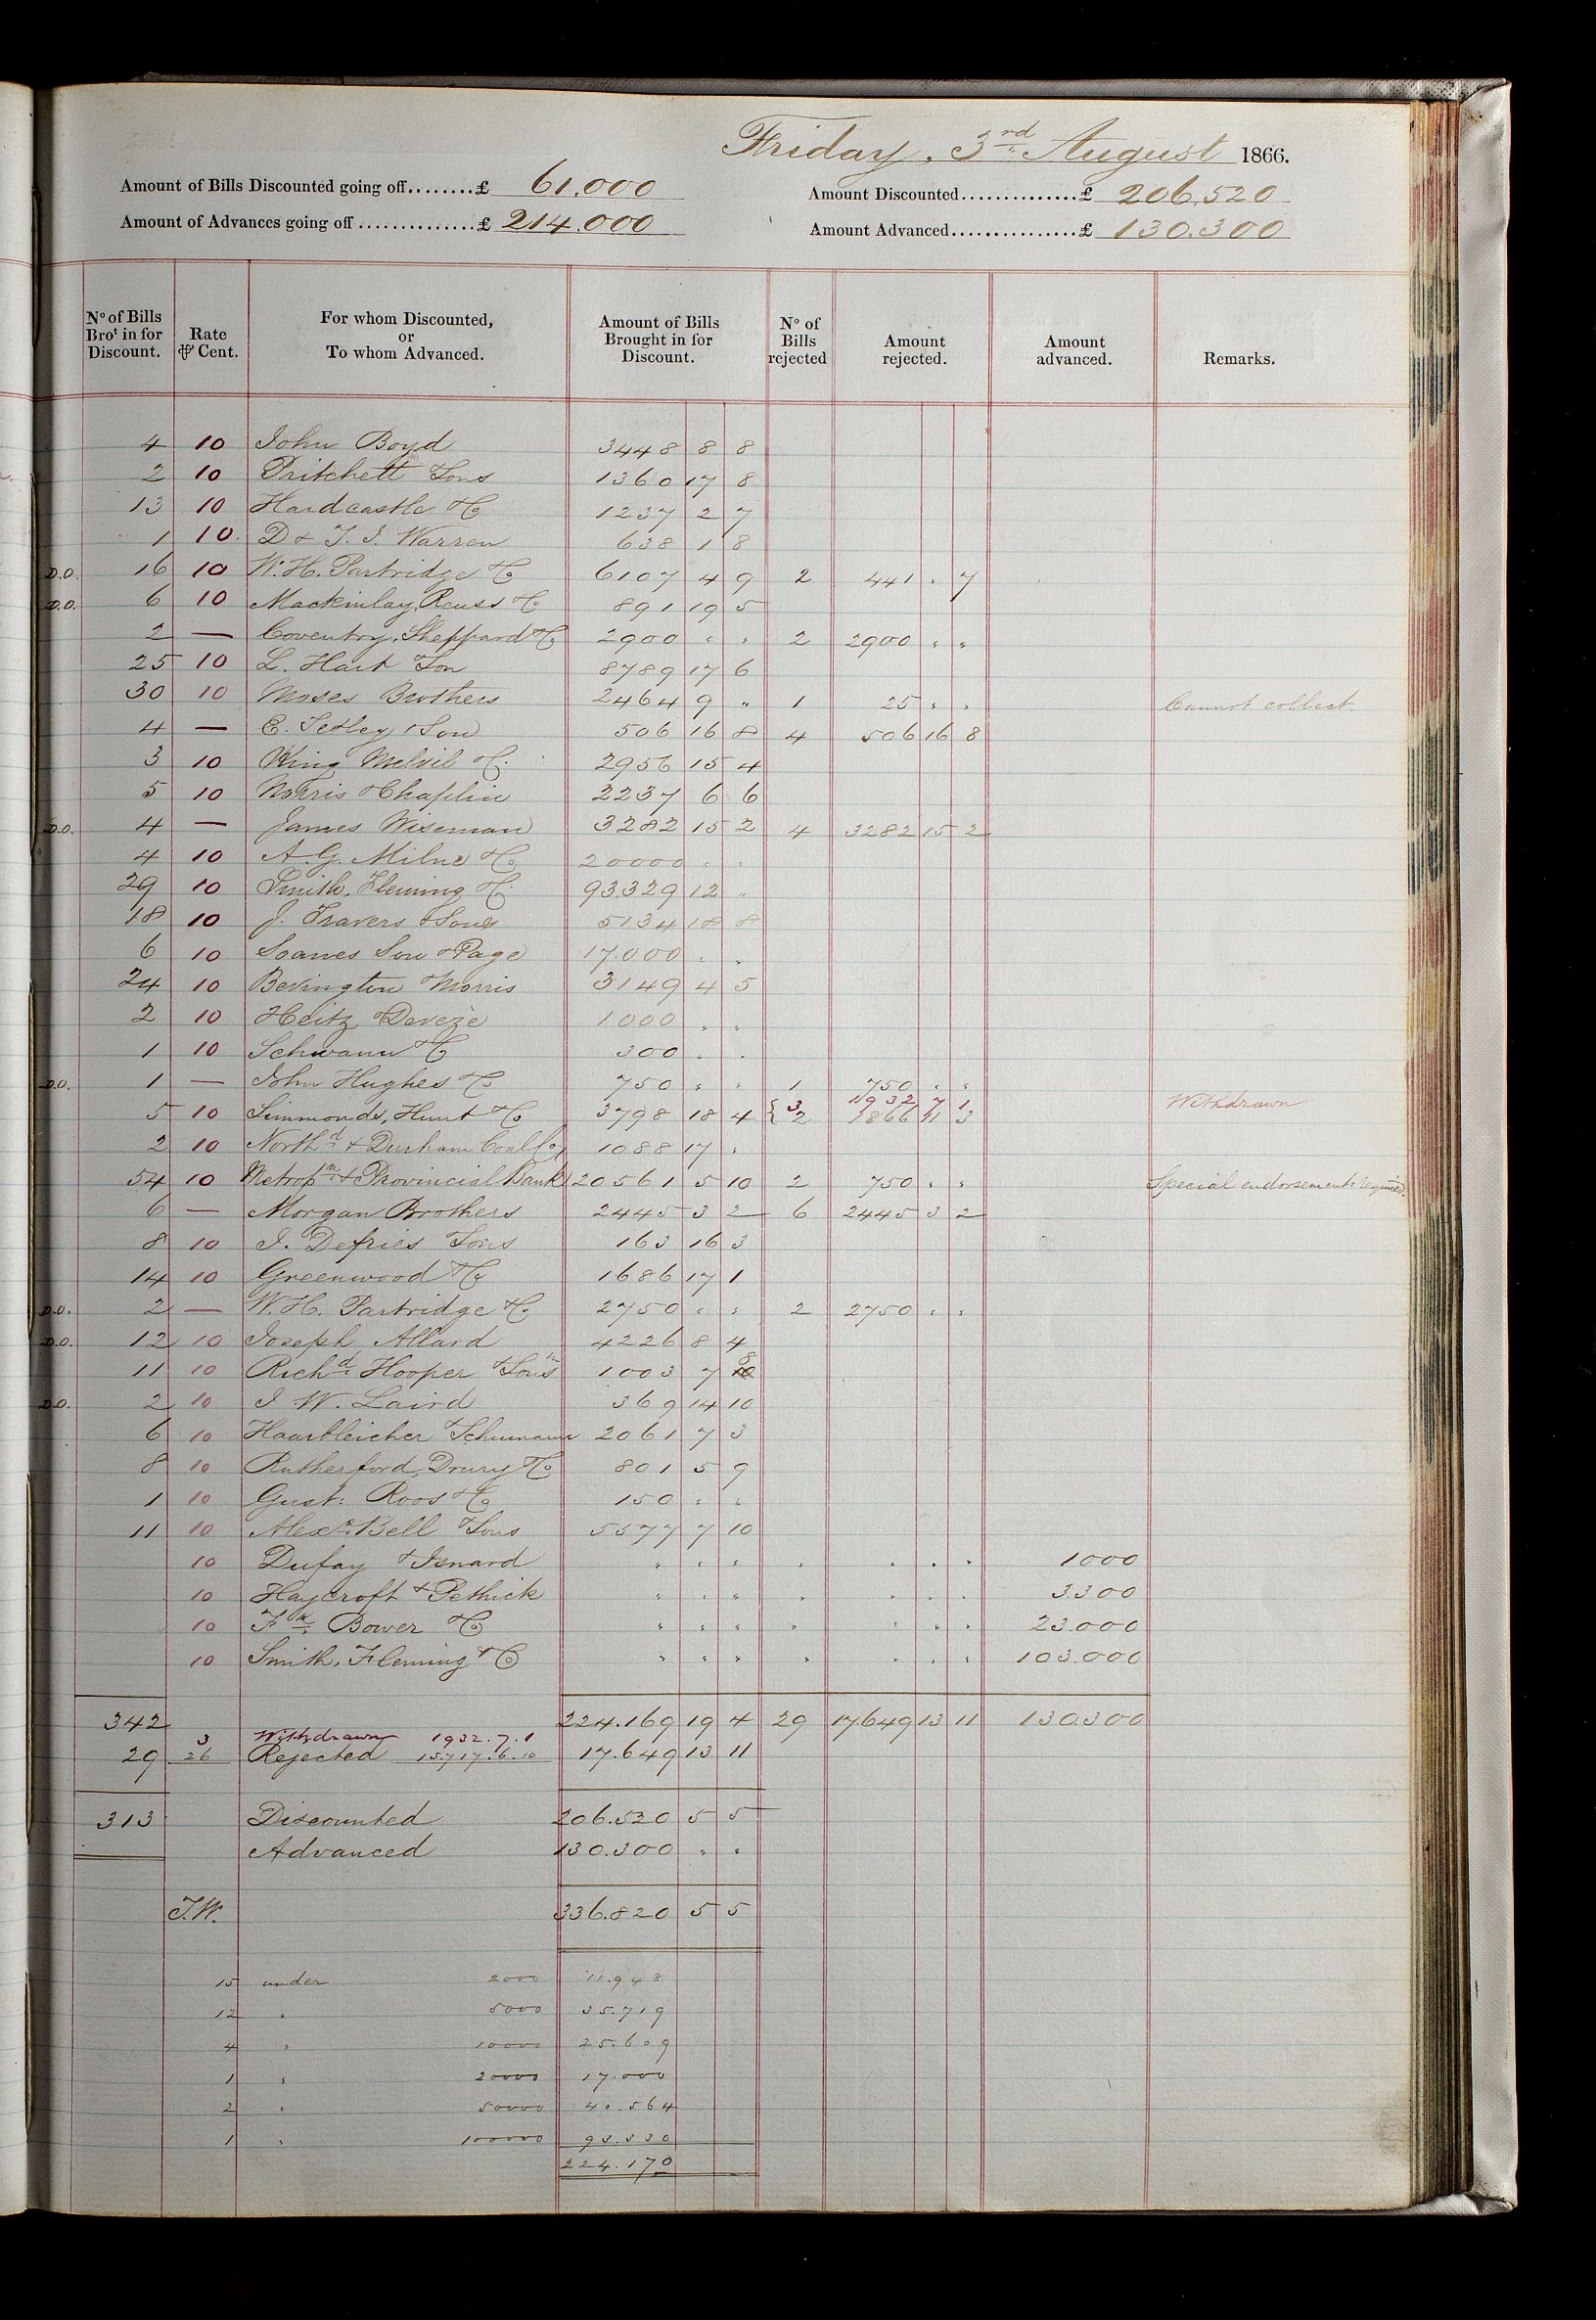 Friday, 3rd August 1866.
Amount of Bills Discounted going off........£ 61.000
Amount Discounted..............£ 206,520
Amount of Advances going off..............£ 214.000
Amount Advanced...............£ 130.300
No of Bills Brot in for Discount. Rate ⅌ Cent. For whom Discounted, or To whom Advanced. Amount of Bills Brought in for Discount. No of Bills rejected Amount rejected. Amount advanced. Remarks.
4 10 John Boyd 3448 8 8
2 10 Pritchett & Sons 1360 17 8
13 10 Hardcastle & Co 1237 2 7
1 10 D & T. J. Warren 638 1 8
D.O. 16 10 W. H. Partridge & Co 6107 4 9 2 441 . 7
D.O. 6 10 Mackinlay, Reuss & Co 891 19 5
2 — Coventry, Sheppard & Co 2900 " " 2 2900 " "
25 10 L. Hart & Son 8789 17 6
30 10 Moses Brothers 2464 9 " 1 25 " " Cannot collect.
4 — & Son 506 16 8 4 506 16 8
3 10 King Melvil & Co 2956 15 4
5 10 Norris & Chaplin 2237 6 6
D.O. 4 — James Wiseman 3282 15 2 4 3282 15 2
4 10 A. G. Milne & Co 20000 " "
29 10 Smith, Fleming & Co 93.329 12 "
18 10 J. Travers & Sons 5134 18 8
6 10 Soames Son & Page 17.000 " "
24 10 Bevington & Morris 3149 4 5
2 10 Heitz & Deveze 1000 " "
1 10 Schwann & Co 300 " "
D.O. 1 — John Hughes & Co 750 " " 1 750 " "
5 10 Simmonds, Hunt & Co 3798 18 4 { 3 1932 7 1 Withdrawn
2 1866 11 3
2 10 Northd & Durham Coal Co 1088 17 "
54 10 Metropn & Provincial Bank 20561 5 10 2 750 " " Special endorsements required.
6 — Morgan Brothers 2445 3 2 6 2445 3 2
8 10 J. Defries & Sons 163 16 3
14 10 Greenwood & Co 1686 17 1
D.O. 2 — W. H. Partridge & Co 2750 " " 2 2750 " "
D.O. 12 10 Joseph Allard 4226 8 4
11 10 Richd Hooper & Sons 1003 7 8
D.O. 2 10 J. W. Laird 369 14 10
6 10 Haarbleicher & Schumann 2061 7 3
8 10 Rutherford, Drury & Co 801 5 9
1 10 Gust: Roos & Co 150 " "
11 10 Alexr Bell & Sons 5577 7 10
10 Dufay & Isnard " " " " " " " 1000
10 Haycroft & Pethick " " " " " " " 3300
10 Fk Bower & Co " " " " " " " 23.000
10 Smith, Fleming & Co " " " " " " " 103.000
342 224.169 19 4 29 17.649 13 11 130.300
3 Withdrawn 1932.7.1
29 26 Rejected 15.717.6.10 17.649 13 11
313 Discounted 206.520 5 5
Advanced 130.300 " "
J.W. 336.820 5 5
15 under 2000 11.948
12 " 5000 35.719
4 " 10000 25.609
1 " 20000 17.000
2 " 50000 40.564
1 " 100000 93.330
224.170